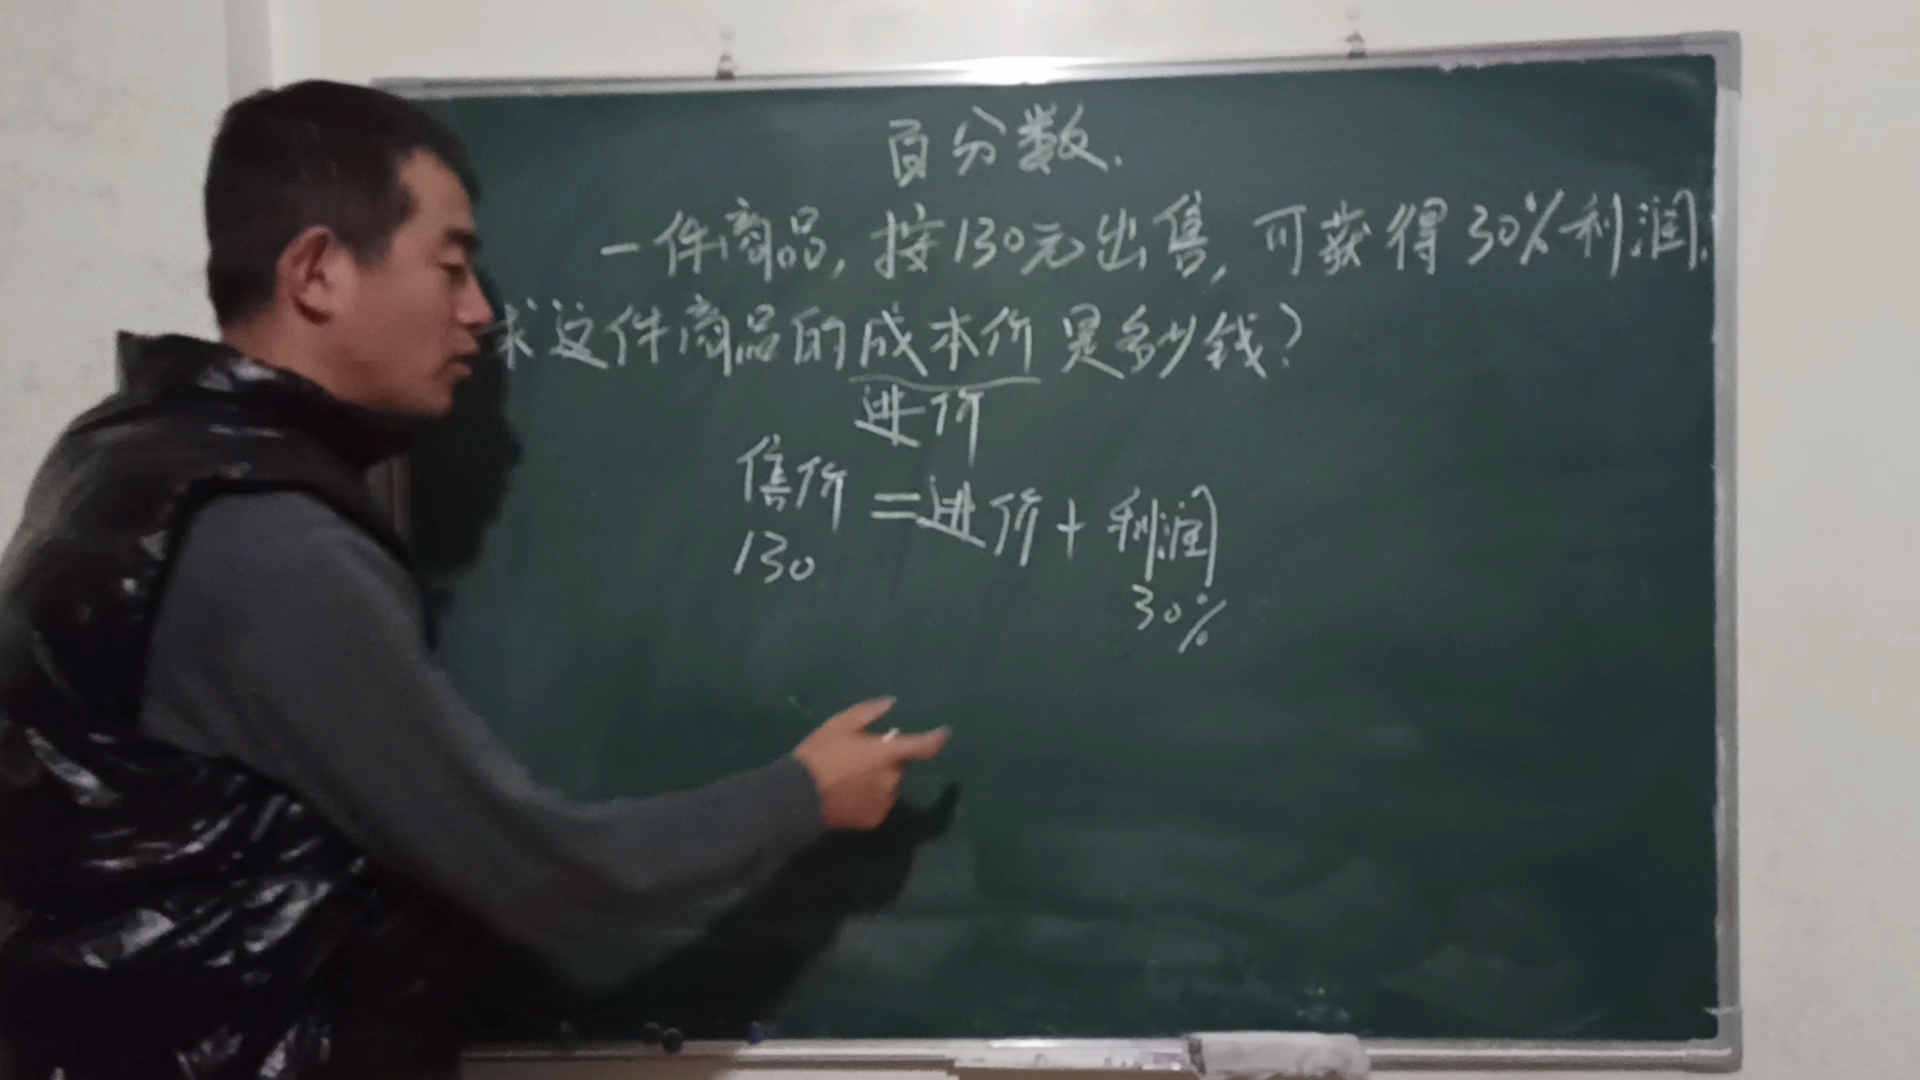 百分数.
一件商品,按130元出售,可获得30%利润.
求这件商品的成本价是多少钱?
进价
售价=进价+利润
130 30%